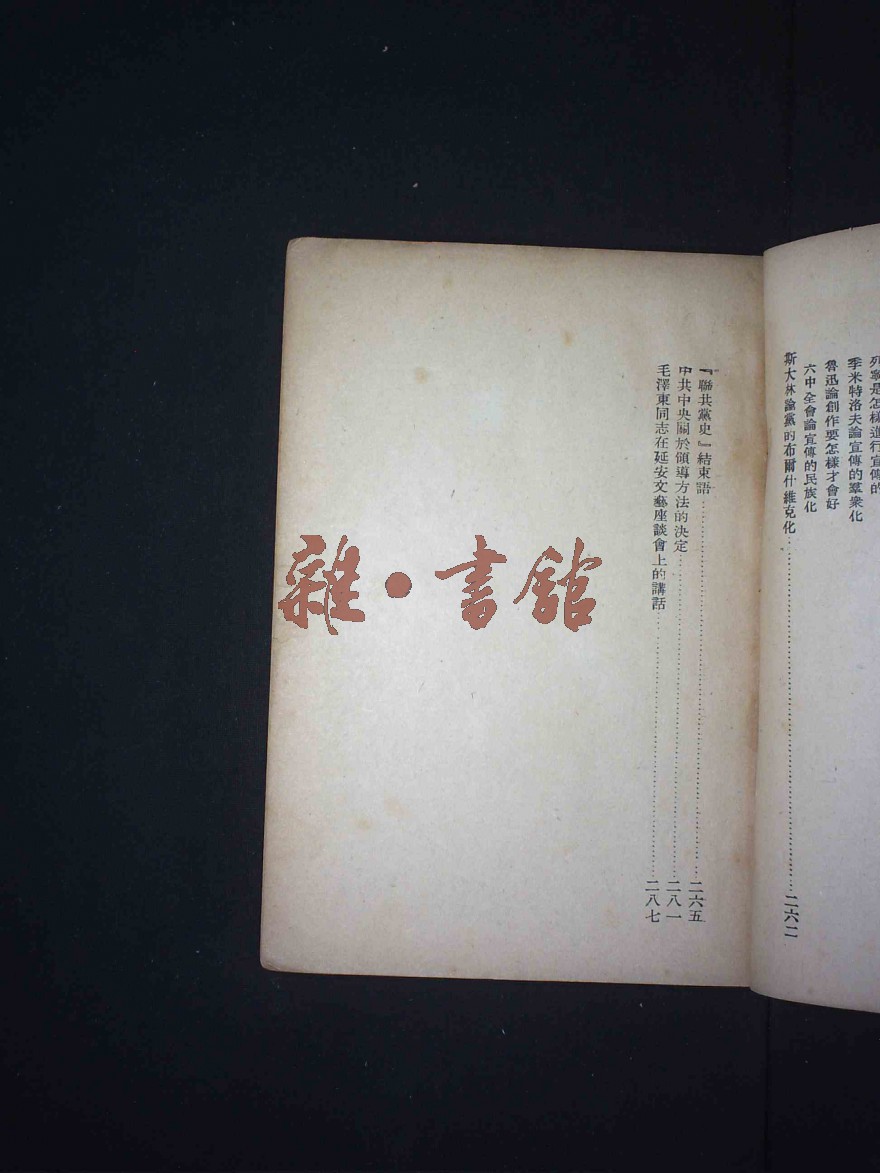 列寧是怎樣進行宣傳的
季米特洛夫論宣傳的羣衆化
魯迅論創作要怎樣才會好
六中全會論宣傳的民族化
斯大林論黨的布爾什維克化……二六二
『聯共黨史』結束語……二六五
中共中央關於領導方法的決定……二八一
毛澤東同志在延安文藝座談會上的講話……二八七
雜・書館